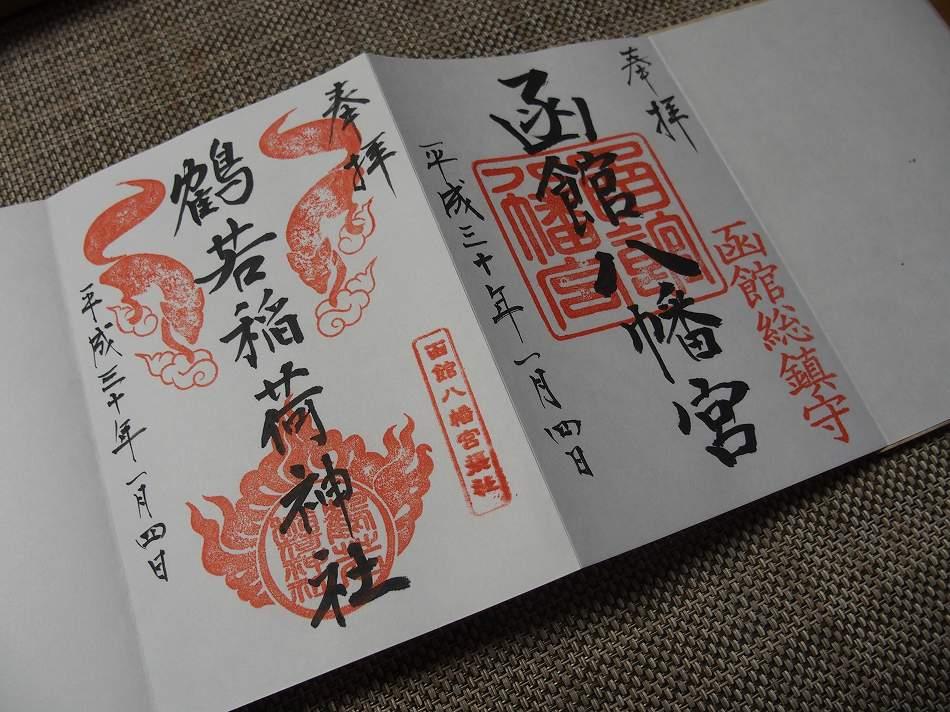 奉拝
函館総鎮守
函館八幡宮
平成三十年一月四日
奉拝
函館八幡宮摂社
鶴若稲荷神社
平成三十年一月四日